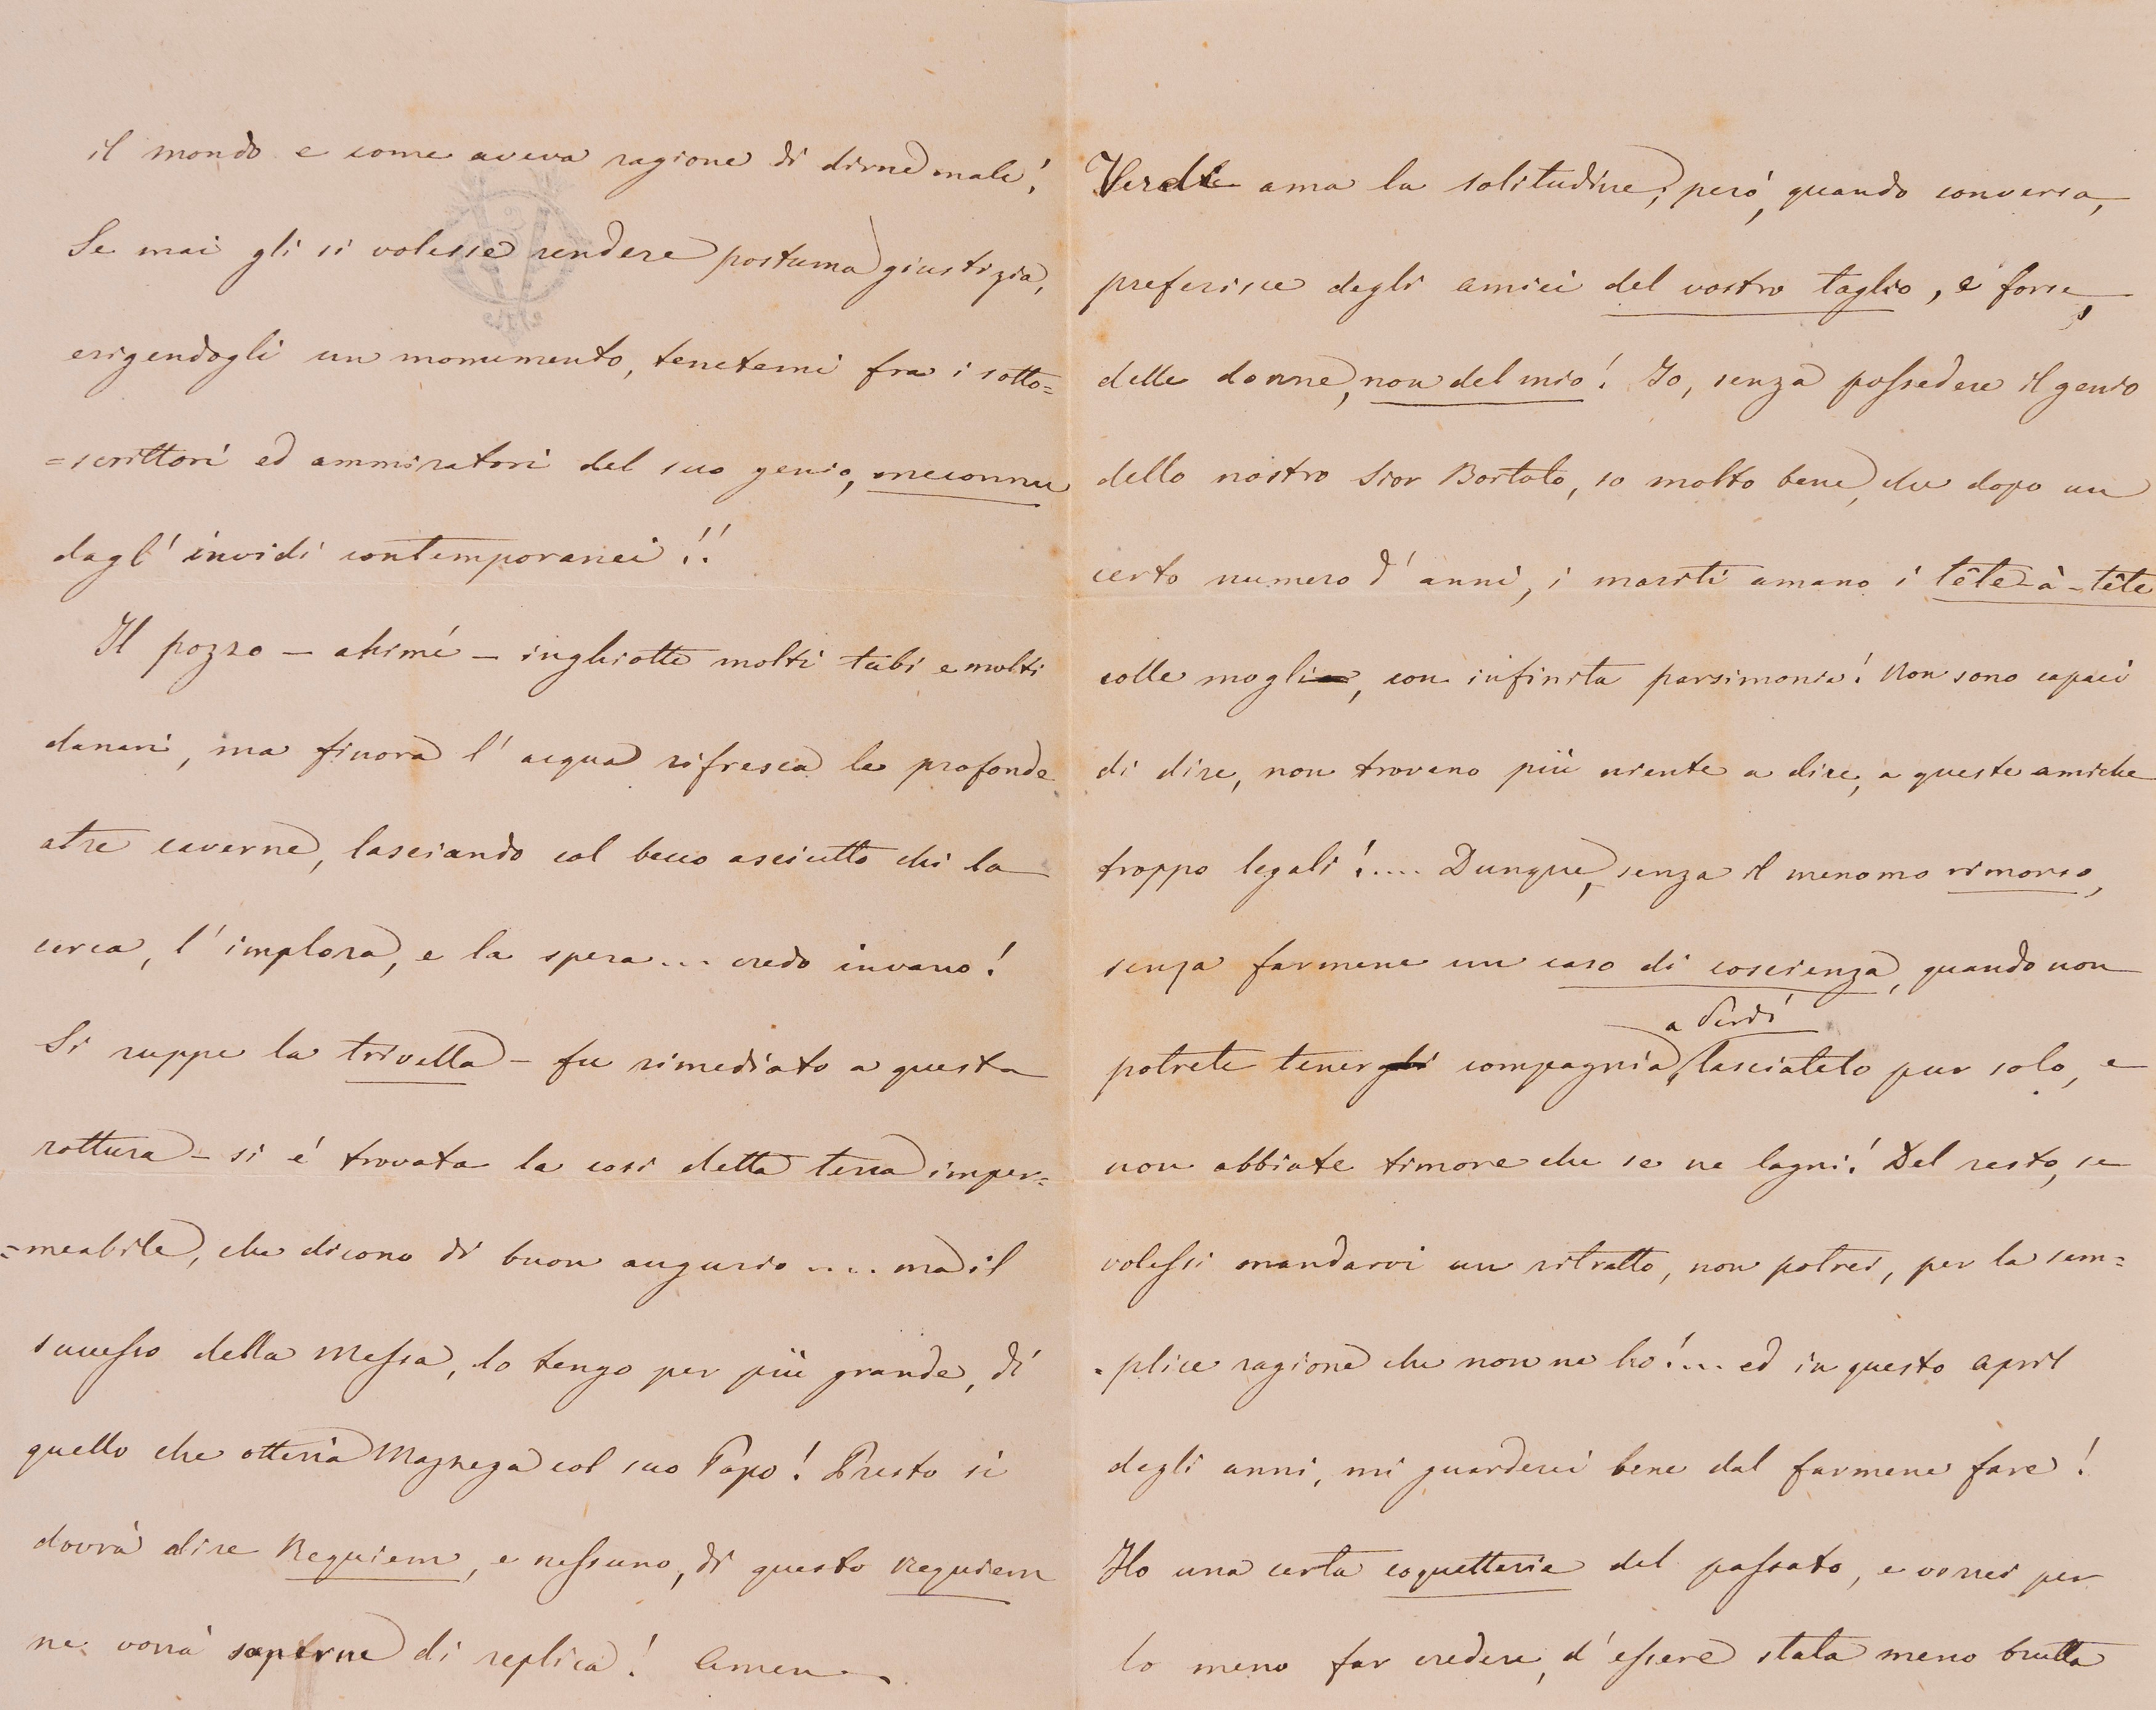 il mondo e come aveva ragione di dirne male!
Se mai gli si volesse rendere postuma giustizia,
erigendogli un monumento, tenetemi fra i sotto=
=scrittori ed ammiratori del suo genio, meconnu
dagl' invidi contemporanei!!
Il pozzo — ahimé — inghiotte molti tubi e molti
danari, ma finora l'acqua rifresca le profonde
atre caverne, lasciando col becco asciutto chi la
cerca, l'implora, e la spera... credo invano!
Si ruppe la trivella — fu rimediato a questa
rottura — si é trovata la cosi detta terra imper=
=meabile, che dicono di buon augurio .... ma il
successo della Messa, lo tengo per più grande, di
quello che otterrà col suo Papo! Presto si
dovrà dire Requiem, e nessuno, di questo Requiem
ne vorrà saperne di replica! Amen
Verdi ama la solitudine; peró, quando conversa,
preferisce degli amici del vostro taglio, e forse,
delle donne, non del mio! Io, senza possedere il genio
dello nostro Sior Bortolo, so molto bene, che dopo un
certo numero d'anni, i mariti amano i tête-à-tête
colle mogli, con infinita parsimonia! Non sono capaci
di dire, non trovano più niente a dire, a queste amiche
troppo legali!.... Dunque, senza il menomo rimorso,
senza farmene un caso di coscienza, quando non
a Verdi
potrete tener compagnia, lasciatelo pur solo, e
non abbiate timore che se ne lagni! Del resto, se
volessi mandarvi un ritratto, non potrei, per la sem=
=plice ragione che non ne ho!... ed in questo April
degli anni, mi guarderei bene dal farmene fare!
Ho una certa coquetterie del passato, e vorrei per
lo meno far credere, d'essere stata meno brutta